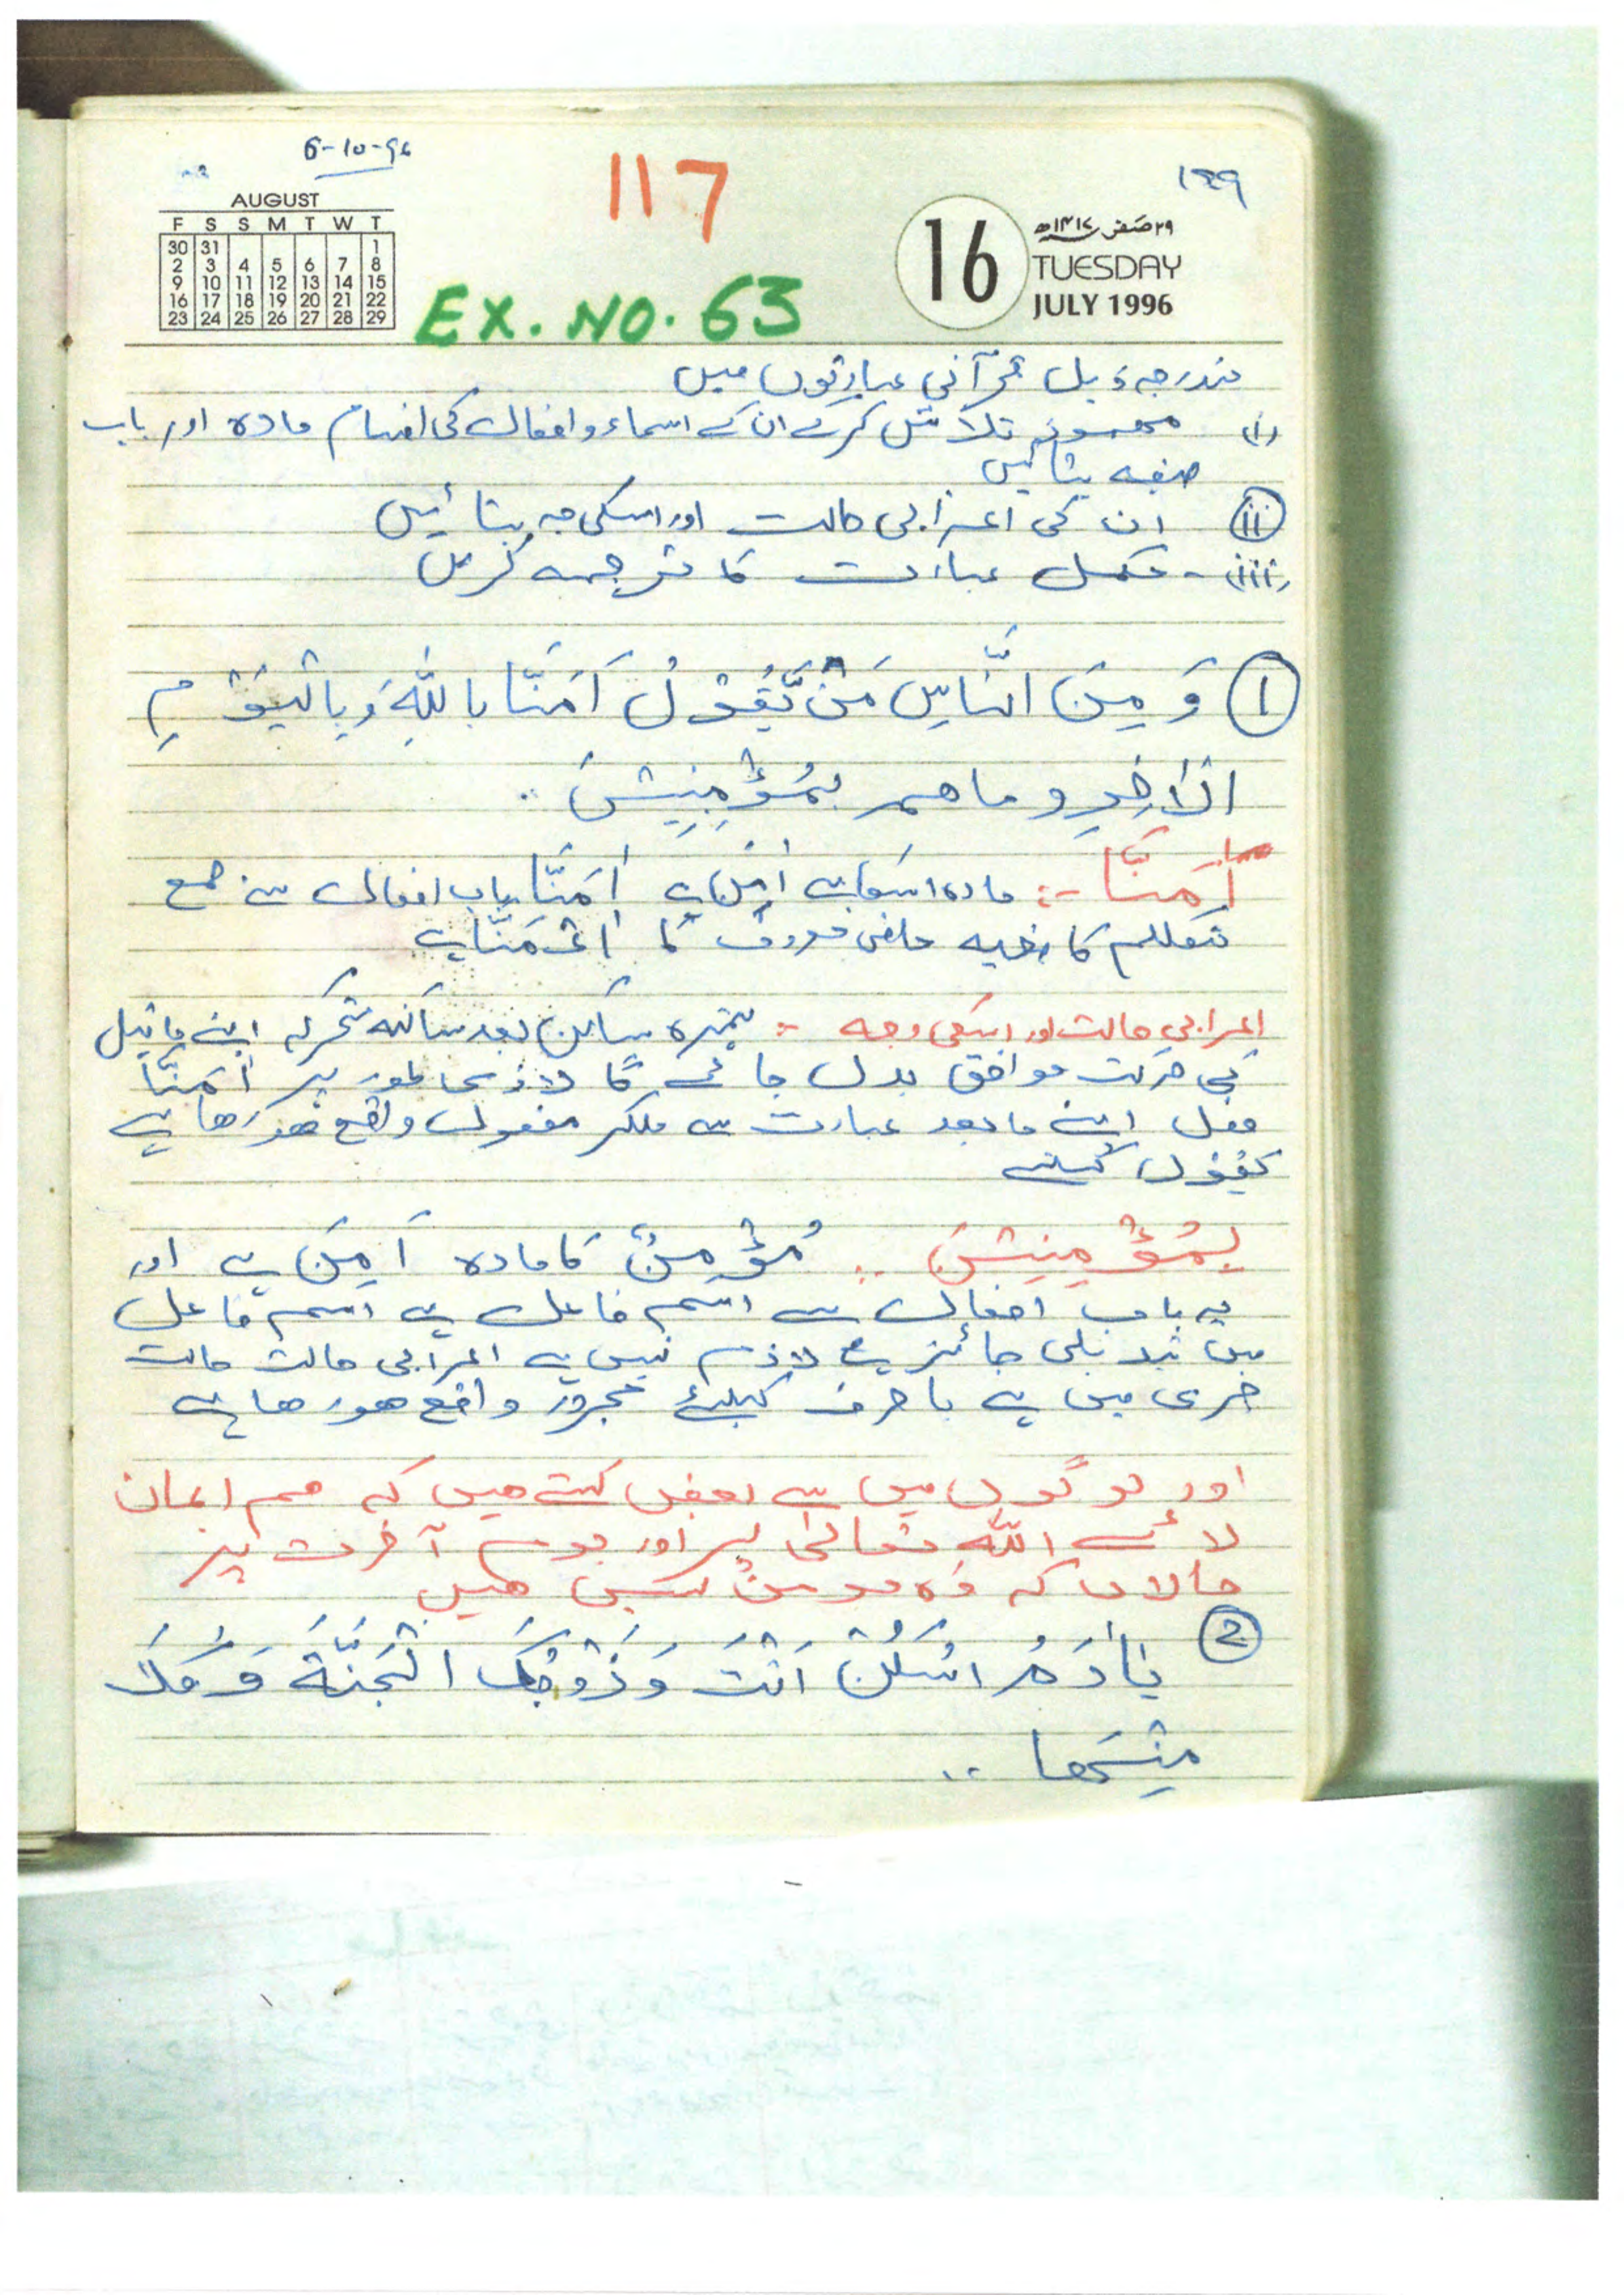 6-10-96
117
۱۴۹
AUGUST
F S S M T W T
30 31 1
2 3 4 5 6 7 8
9 10 11 12 13 14 15
16 17 18 19 20 21 22
23 24 25 26 27 28 29
16
۲۹ صفر ۱۴۱۷ھ
TUESDAY
JULY 1996
EX. NO. 63
مندرجہ ذیل قرآنی عبارتوں میں
(i) مہموز تلاش کرکے ان کے اسماء و افعال کی اقسام مادہ اور باب
صیغہ بتائیں
(ii) ان کی اعرابی حالت اور اسکی وجہ بتائیں
(iii) - مکمل عبارت کا ترجمہ کریں
① وَ مِنَ النَّاسِ مَنْ يَّقُوْلُ اٰمَنَّا بِاللّٰهِ وَ بِالْيَوْمِ
الْاٰخِرِ و ما هم بِمُؤْمِنِيْنَ ..
اٰمَنَّا :- مادہ اسکا ہے اَمِنَ ہے اٰمَنَّا باب افعال سے جمع
متکلم کا صیغہ ماضی معروف کا اٰمَنَّا ہے
اعرابی حالت اور اسکی وجہ :- ہمزہ ساکن بعد ساکنہ متحرکہ اپنے ماقبل
کی حرکت موافق بدل جائے گا لازمی طور پر اٰمَنَّا
فعل اپنے مابعد عبارت سے ملکر مفعول واقع ھو رھا ہے
یَقُوْلُ کیلئے
بِمُؤْمِنِيْنَ .. مُؤْمِنٌ کا مادہ اَمِنَ ہے اور
یہ باب افعال سے اسم فاعل ہے اسم فاعل
میں تبدیلی جائز ہے لازم نہیں ہے اعرابی حالت حالت
جری میں ہے با حرف کیلئے مجرور واقع ھو رھا ہے
اور لوگوں میں سے بعض کہتے ھیں کہ ھم ایمان
لائے اللّٰہ تعالیٰ پر اور یوم آخرت پر
حالانکہ وہ مومن نہیں ھیں
② يٰاٰدَمُ اسْكُنْ اَنْتَ وَ زَوْجُكَ الْجَنَّةَ وَ كُلَا
مِنْهَا ..